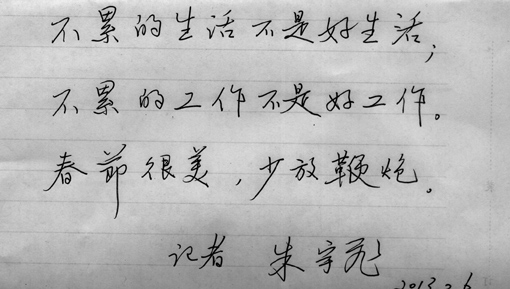 不累的生活不是好生活，
不累的工作不是好工作。
春节很美，少放鞭炮。
记者 朱宇
2013.2.6